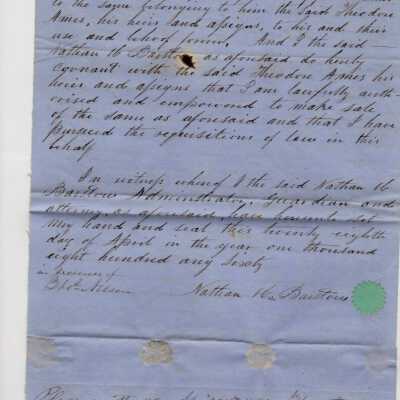 to the same belonging to him the said Theodore
Ames, his heirs and assigns, to his and their
use and behoof forever. And I the said
Nathan H Barstow as aforesaid do hereby
covnant with the said Theodore Ames his
heirs and assigns that I am lawfully auth-
orised and empowered to make sale
of the same as aforesaid and that I have
pursued the requisitions of law in this
behalf
In witness whereof I the said Nathan H
Barstow Administrator, Guardian and
attorney as aforesaid have hereunto set
my hand and seal this twenty eighth
day of April in the year one thousand
eight hundred any Sixty
in presence of
Nathan H Barstow